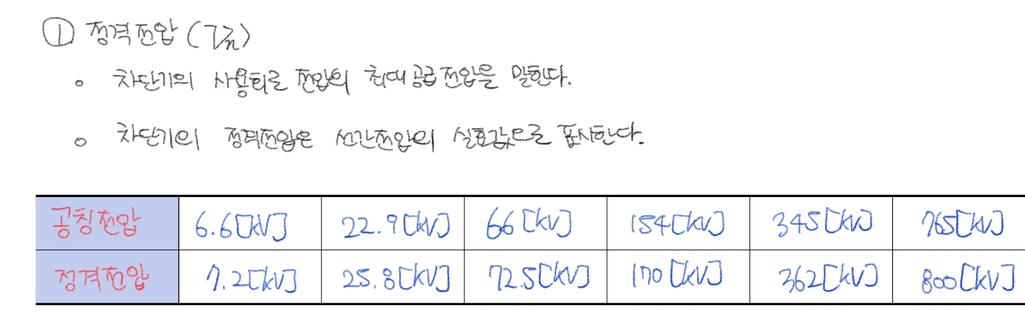 ① 정격전압 (7.2kV)
◦ 차단기의 사용회로 전압의 최대 공급전압을 말한다.
◦ 차단기의 정격전압은 선간전압의 실효값으로 표시한다.
공칭전압 6.6[kV] 22.9[kV] 66[kV] 154[kV] 345[kV] 765[kV]
정격전압 7.2[kV] 25.8[kV] 72.5[kV] 170[kV] 362[kV] 800[kV]